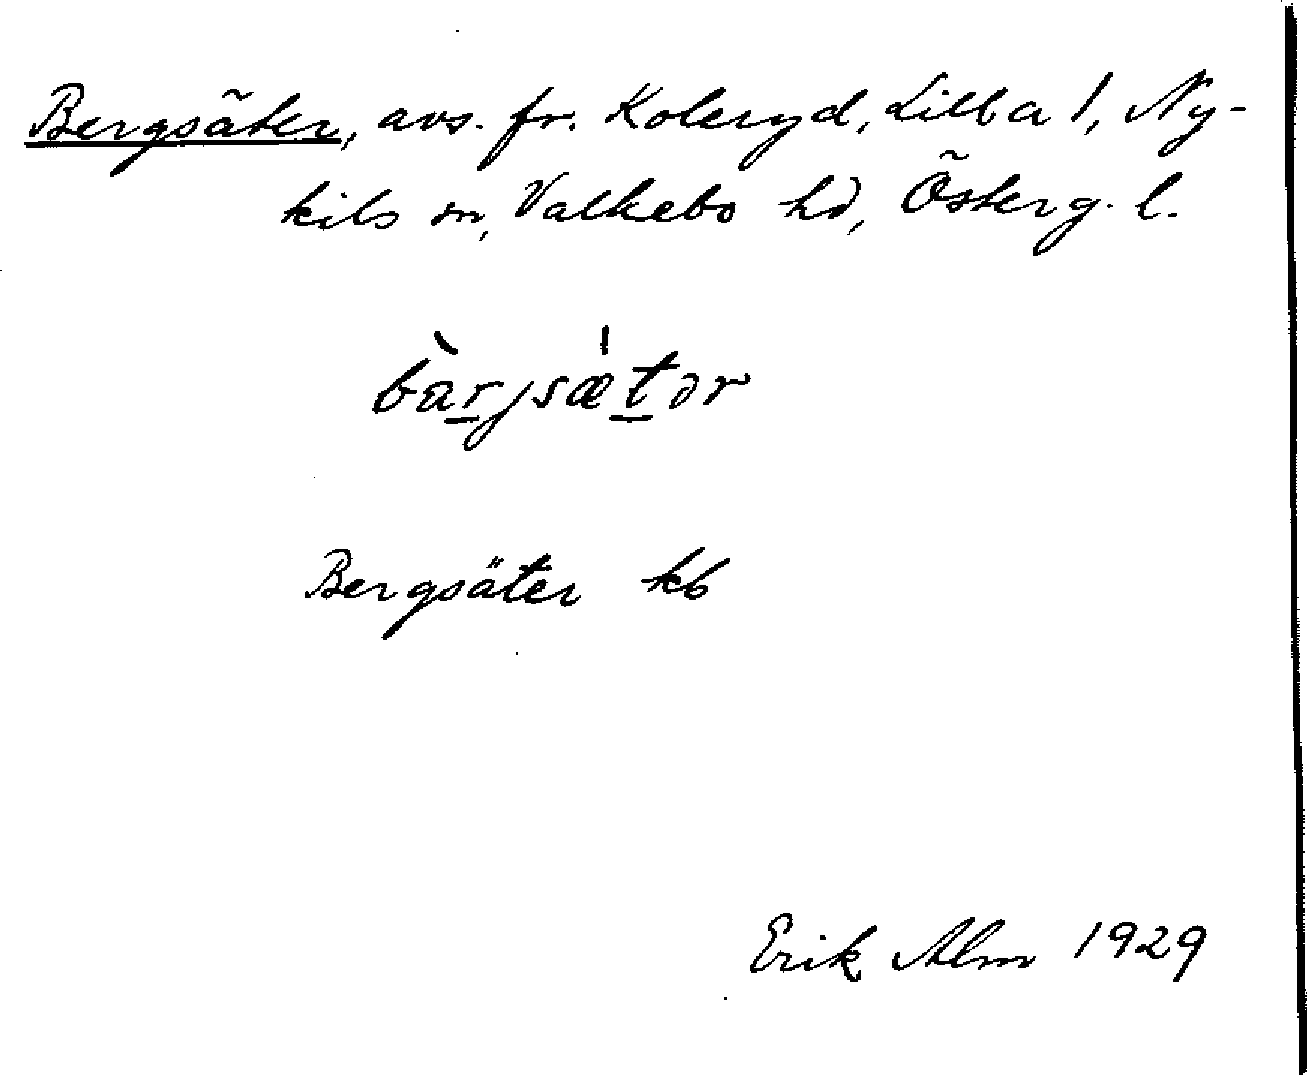 Bergsäter, avs. fr. Koleryd, Lilla 1, Ny-
kils sn, Valkebo hd, Österg. l.
bàrjsætər
Bergsäter kb
Erik Alm 1929